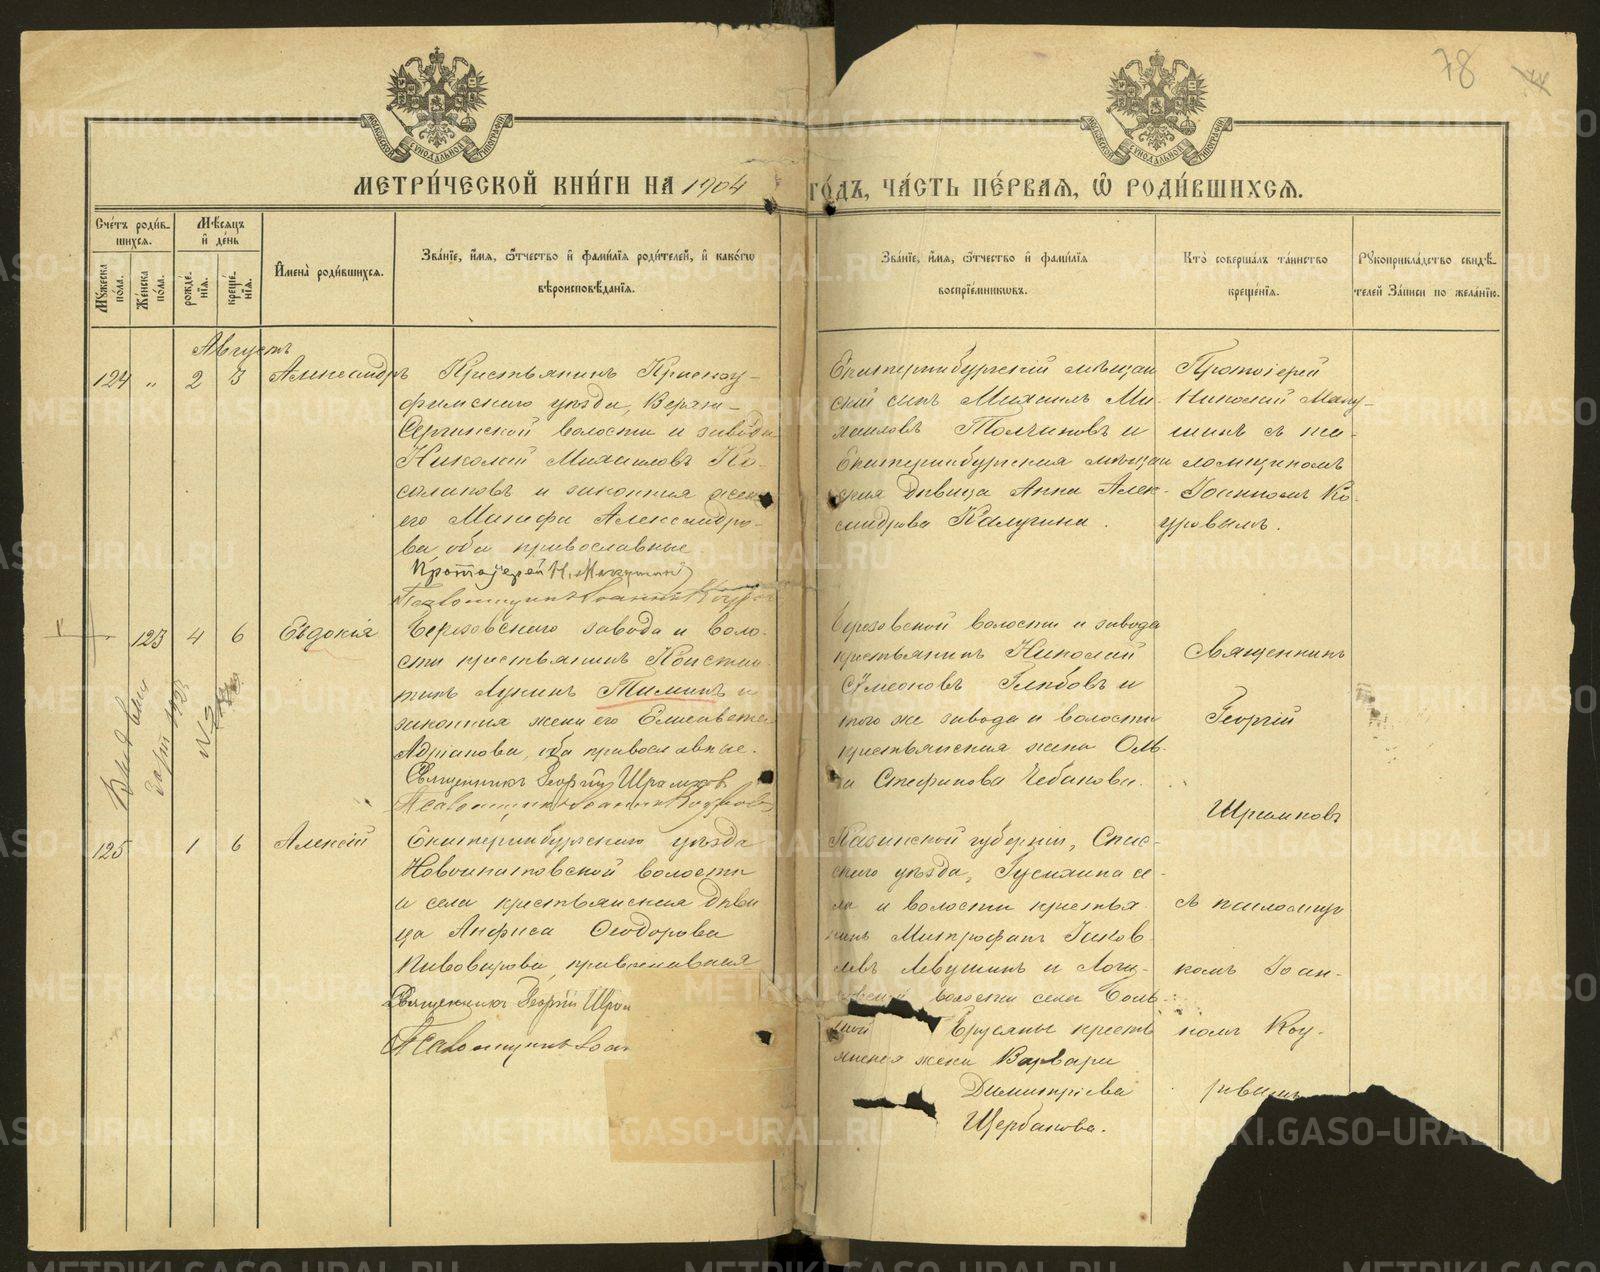 78
МОСКОВСКОЙ СѴНОДАЛЬНОЙ ТИПОГРАФІИ
МОСКОВСКОЙ СѴНОДАЛЬНОЙ ТИПОГРАФІИ
МЕТРИ́ЧЕСКОЙ КНИ́ГИ НА 1904 ГО́ДЪ, ЧА́СТЬ ПЕ́РВАЯ, Ѡ҆ РОДИ́ВШИХСЯ.
Сче́тъ роди́в-
шихся.
Му́жеска по́ла.
Же́нска по́ла.
Мѣ́сяцъ
и҆ де́нь
рожде́-
нія.
креще́-
нія.
И҆мена̀ роди́вшихся.
Зва́ніе, и҆́мя, ѻ҆́тчество и҆ фами́лія роди́телей, и҆ како́гѡ
вѣроисповѣ́данія.
Зва́ніе, и҆́мя, ѻ҆́тчество и҆ фами́лія
воспріе́мниковъ.
Кто̀ соверша́лъ та́инство
креще́нія.
Рукоприкла́дство свидѣ́-
телей за́писи по жела́нію.
Августъ
124 „ 2 3 Александръ
Крестьянинъ Красноу-
фимскаго уѣзда, Верхне-
Сергинской волости и завода
Николай Михаиловъ Ко-
и законная жена
его Александро-
ва оба православные
Протоіерей Н. Макушинъ
Псаломщикъ Іоаннъ
Екатеринбургскій мѣщан
скій сынъ Михаилъ Ми-
хаиловъ и
Екатеринбургская мѣщан
ская дѣвица Анна Алек-
сандрова Калугина.
Протоіерей
Николай Маку-
шинъ съ пса-
ломщикомъ
Іоанномъ Ко-
уровымъ.
123 4 6 Евдокія
Березовскаго завода и воло-
сти крестьянинъ Констан-
тинъ Лукинъ Тиминъ и
законная жена его Елисавета
Адріанова, оба православные.
Священникъ Георгій
Псаломщикъ Іоаннъ
Березовской волости и завода
крестьянинъ Николай
Симеоновъ Глѣбовъ и
того же завода и волости
крестьянская жена Оль-
га Стефанова Чебакова.
Священникъ
Георгій
125 1 6 Алексій
Екатеринбургскаго уѣзда
Новоипатовской волости
и села крестьянская дѣви
ца Анфиса Ѳеодорова
Пивоварова, православная
Священникъ Георгій
Псаломщикъ Іоан
Казанской губерніи, Спас-
скаго уѣзда, се-
ла и волости крестья
нинъ Митрофанъ Іаков
левъ Левушинъ и
волости села Боль
шой крестья
янская жена Варвара
Димитріева
Щербакова.
съ псаломщи
комъ Іоан-
номъ Коу-
ровымъ